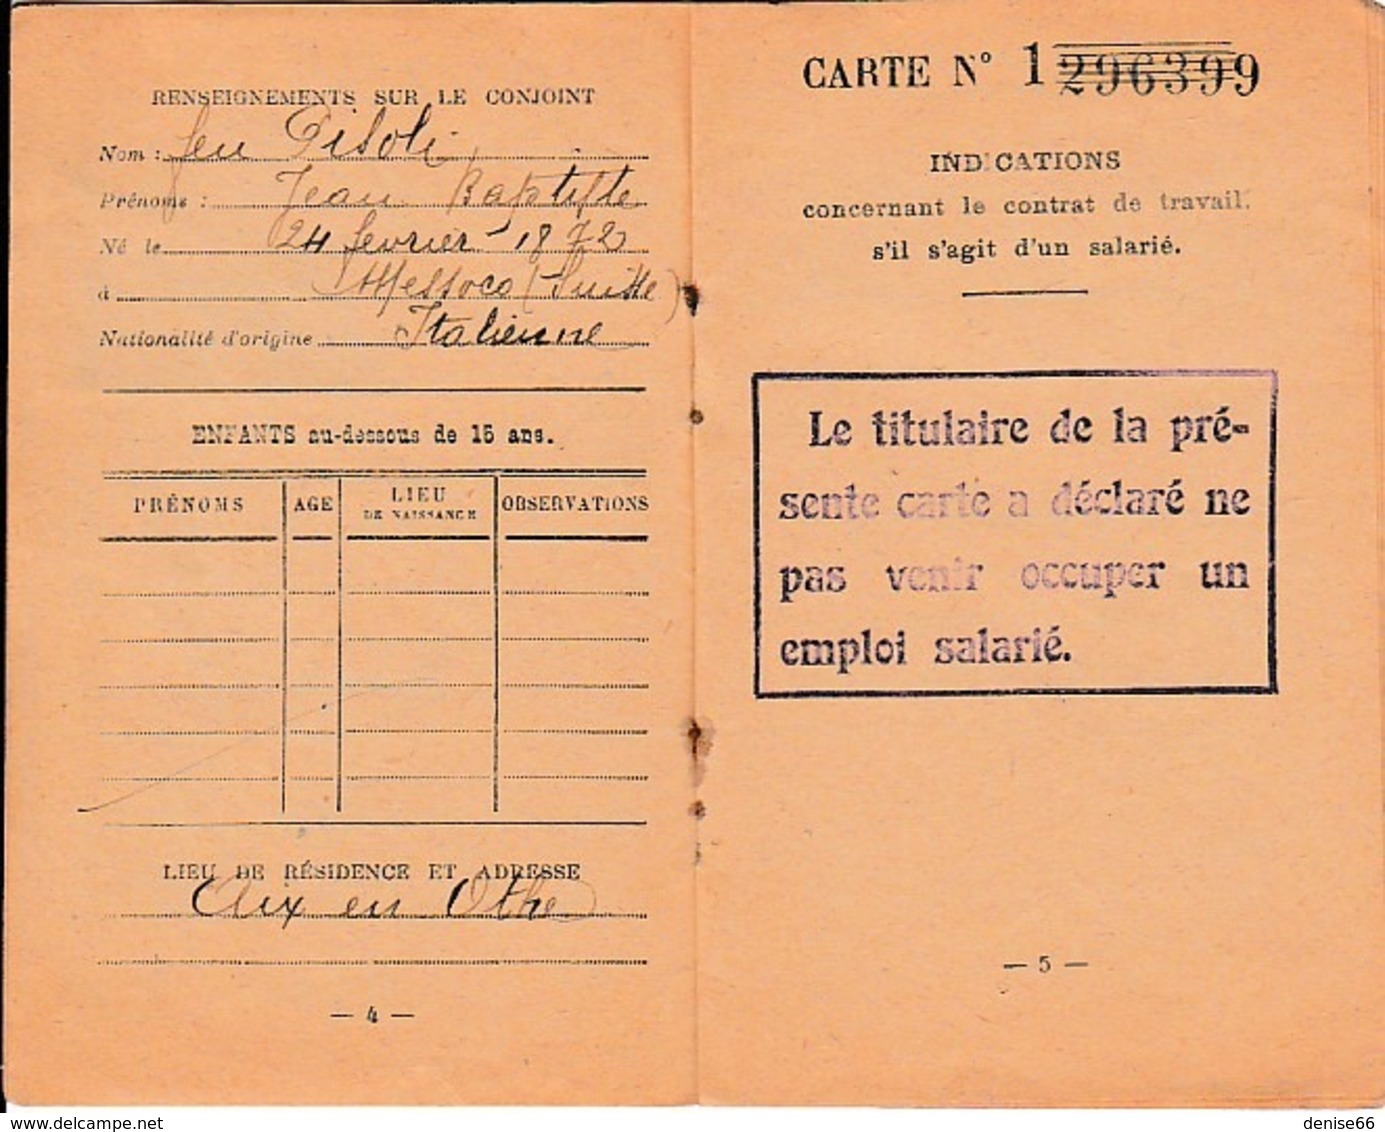 RENSEIGNEMENTS SUR LE CONJOINT
Nom : feu Pisoli
Prénoms : Jean Baptiste
Né le 24 février 1872
à Messoco (Suisse)
Nationalité d'origine Italienne
ENFANTS au-dessous de 15 ans.
PRÉNOMS AGE LIEU DE NAISSANCE OBSERVATIONS
LIEU DE RÉSIDENCE ET ADRESSE
Aix en Othe
— 4 —
CARTE N° 1 296399
INDICATIONS
concernant le contrat de travail.
s'il s'agit d'un salarié.
Le titulaire de la pré-
sente carte a déclaré ne
pas venir occuper un
emploi salarié.
— 5 —
www.delcampe.net
denise66